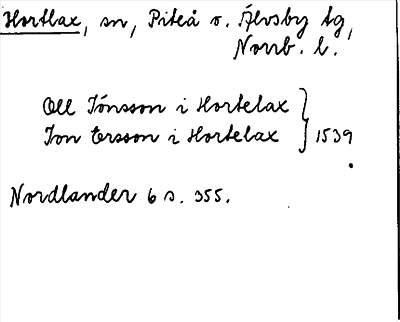 Hortlax, sn, Piteå o. Älvsby tg,
Norrb. l.
Oll Jönsson i Hortelax
Jon Ersson i Hortelax } 1539
.
Nordlander 6 s. 355.